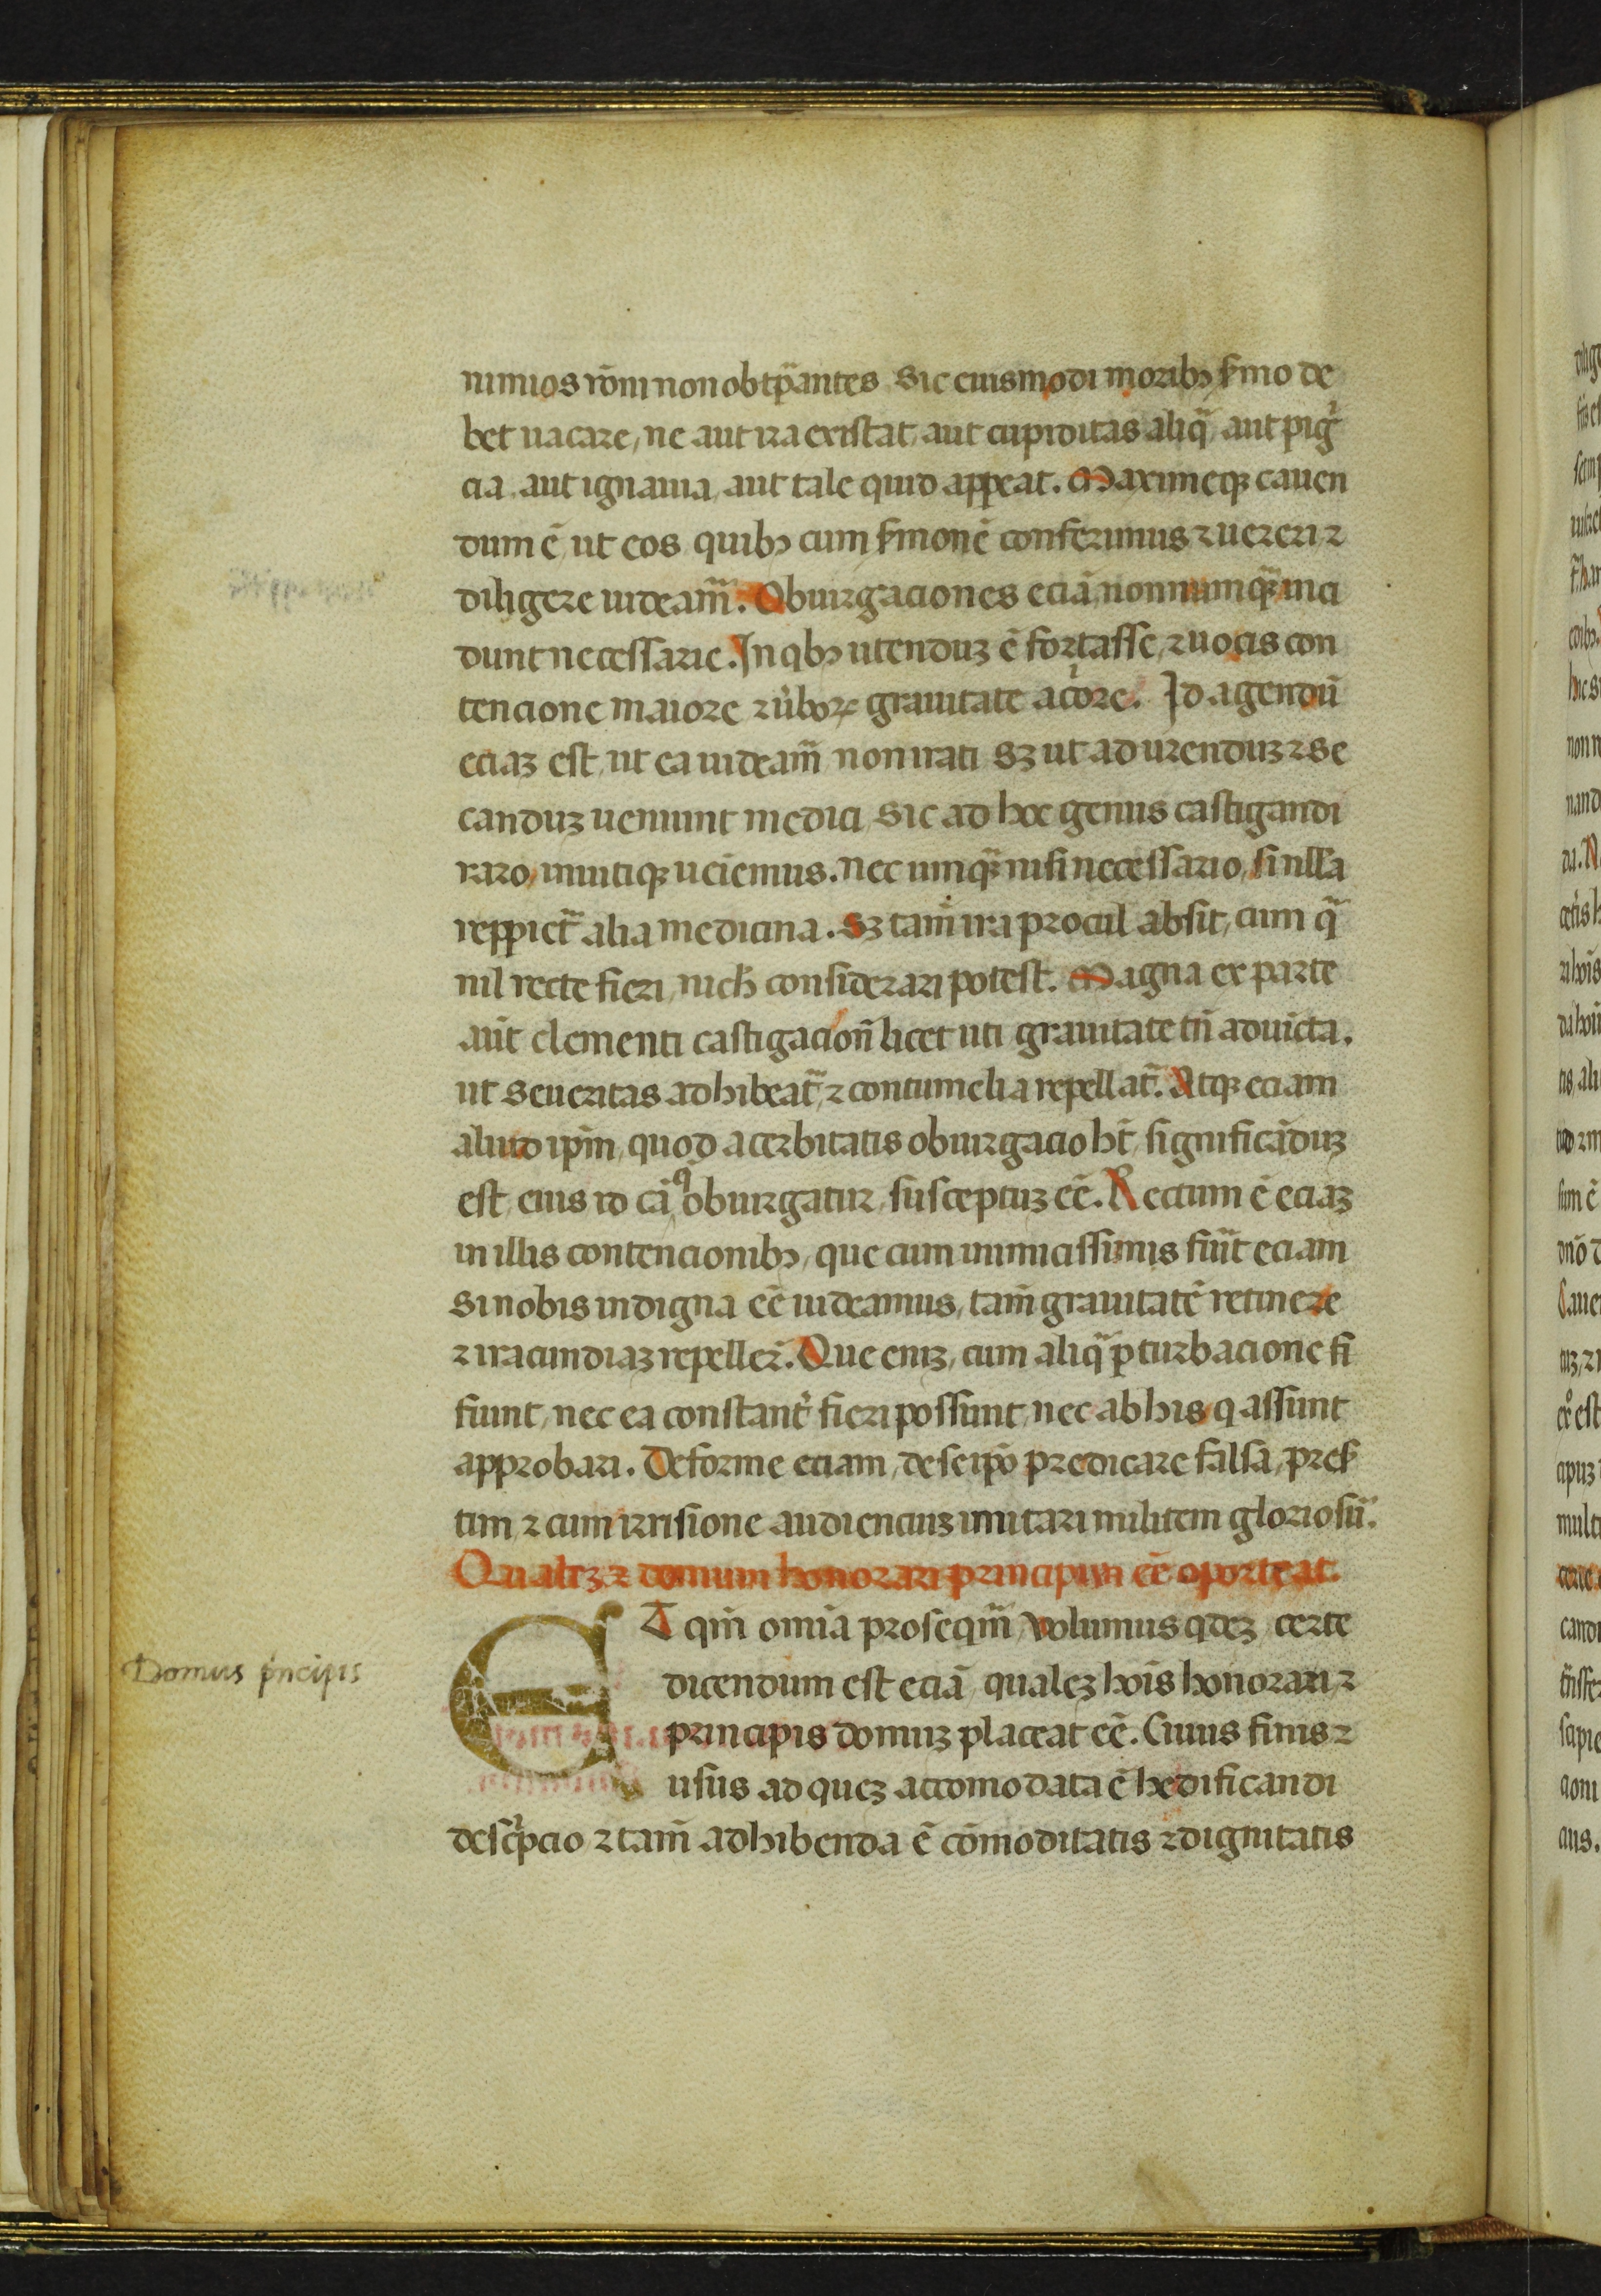 nimios rõni non obtꝑantes sic cuismodi moribꝫ ẜmo de
bet uacare, ne aut ira existat, aut cupiditas aliq̃, aut pigͥ
cia, aut ignauia, aut tale quid appeat. Maximeqꝫ cauen
dum ē, ut eos quibꝫ cum ẜmonē conferimus ⁊ uereri ⁊
diligere uideam̃. Obiurgaciones eciã, nonnumqꝫ inci
dunt necessarie. In qbꝫ utenduꝫ ē fortasse, ⁊ uocis con
tencione maiore ⁊ ũboꝝ grauitate acͥore. Id agendũ
eciaꝫ est, ut ea uideam̃ non irati sꝫ ut ad urenduꝫ ⁊ se
canduꝫ ueniunt medici, sic ad hoc genus castigandi
raro, inuitiqꝫ ueiemus. nec umqꝫ nisi necessario, si nlľa
reppiet̃ alia medicina. Sꝫ tam̃ ira procul absit, cum q̃
nil recte fieri, nich considerari potest. Magna ex parte
aũt clementi castigacioñ licet uti grauitate tñ adiũcta.
ut seueritas adhibeat̃, ⁊ contumelia repellat̃. Atqꝫ eciam
aliud ipm̃, quod acerbitatis obiurgacio ht̃, significãduꝫ
est, eius id cã, qͦ obiurgatur, susceptuꝫ eē. Rectum ē eciaꝫ
in illis contencionibꝫ, que cum inimicissimis fiũt eciam
si nobis indigna eē uideamus, tam̃ grauitatē retinere
⁊ iracundiaꝫ repeller̃. Que eniꝫ, cum aliq̃ ꝑturbacione fi
fiunt, nec ea constant̃ fieri possunt, nec ab his q assunt
approbari. Deforme eciam, de seipõ predicare falsa, preẜ
tim ⁊ cum irrisione audienciuꝫ imitari militem gloriosũ.
Qualeꝫ ⁊ domum honorari principiın eē oporteat.
ET qm̃ omĩa prosequim̃, volumus qdeꝫ, certe
dicendum est eciã, qualeꝫ hoĩs honorari, ⁊
principis domuꝫ placeat eē. Cuius finis ⁊
usus ad quez accomodata ē hedificandi
descͥpcio ⁊ tam̃ adhibenda ē cõmoditatis ⁊ dignitatis
Domus pͥncipis